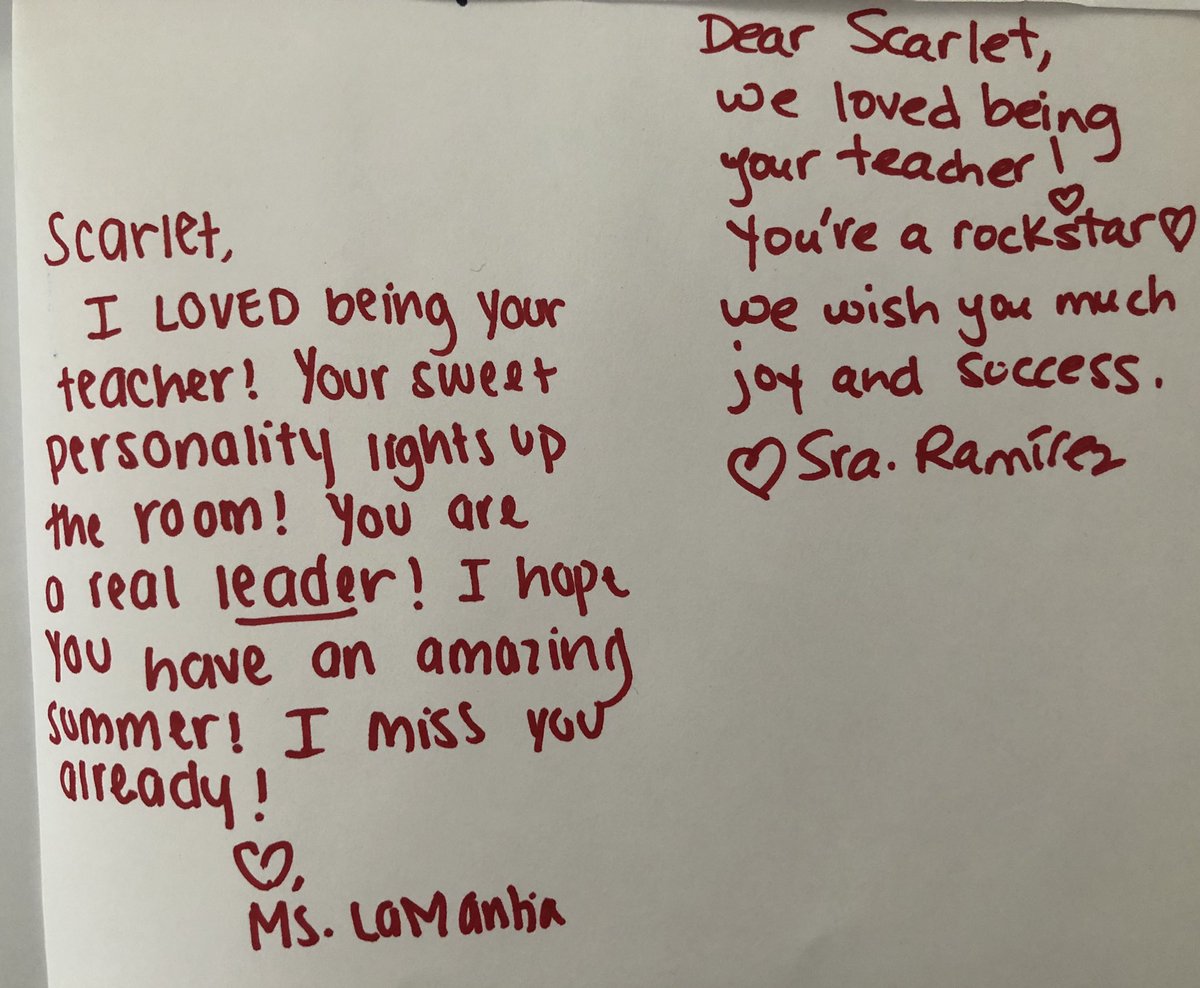 Scarlet,
I LOVED being your
teacher! Your sweet
personality lights up
the room! You are
a real leader! I hope
you have an amazing
summer! I miss you
already!
♡,
Ms. LaMantia
Dear Scarlet,
we loved being
your teacher!
You're a rockstar♡
we wish you much
joy and success.
♡ Sra. Ramírez